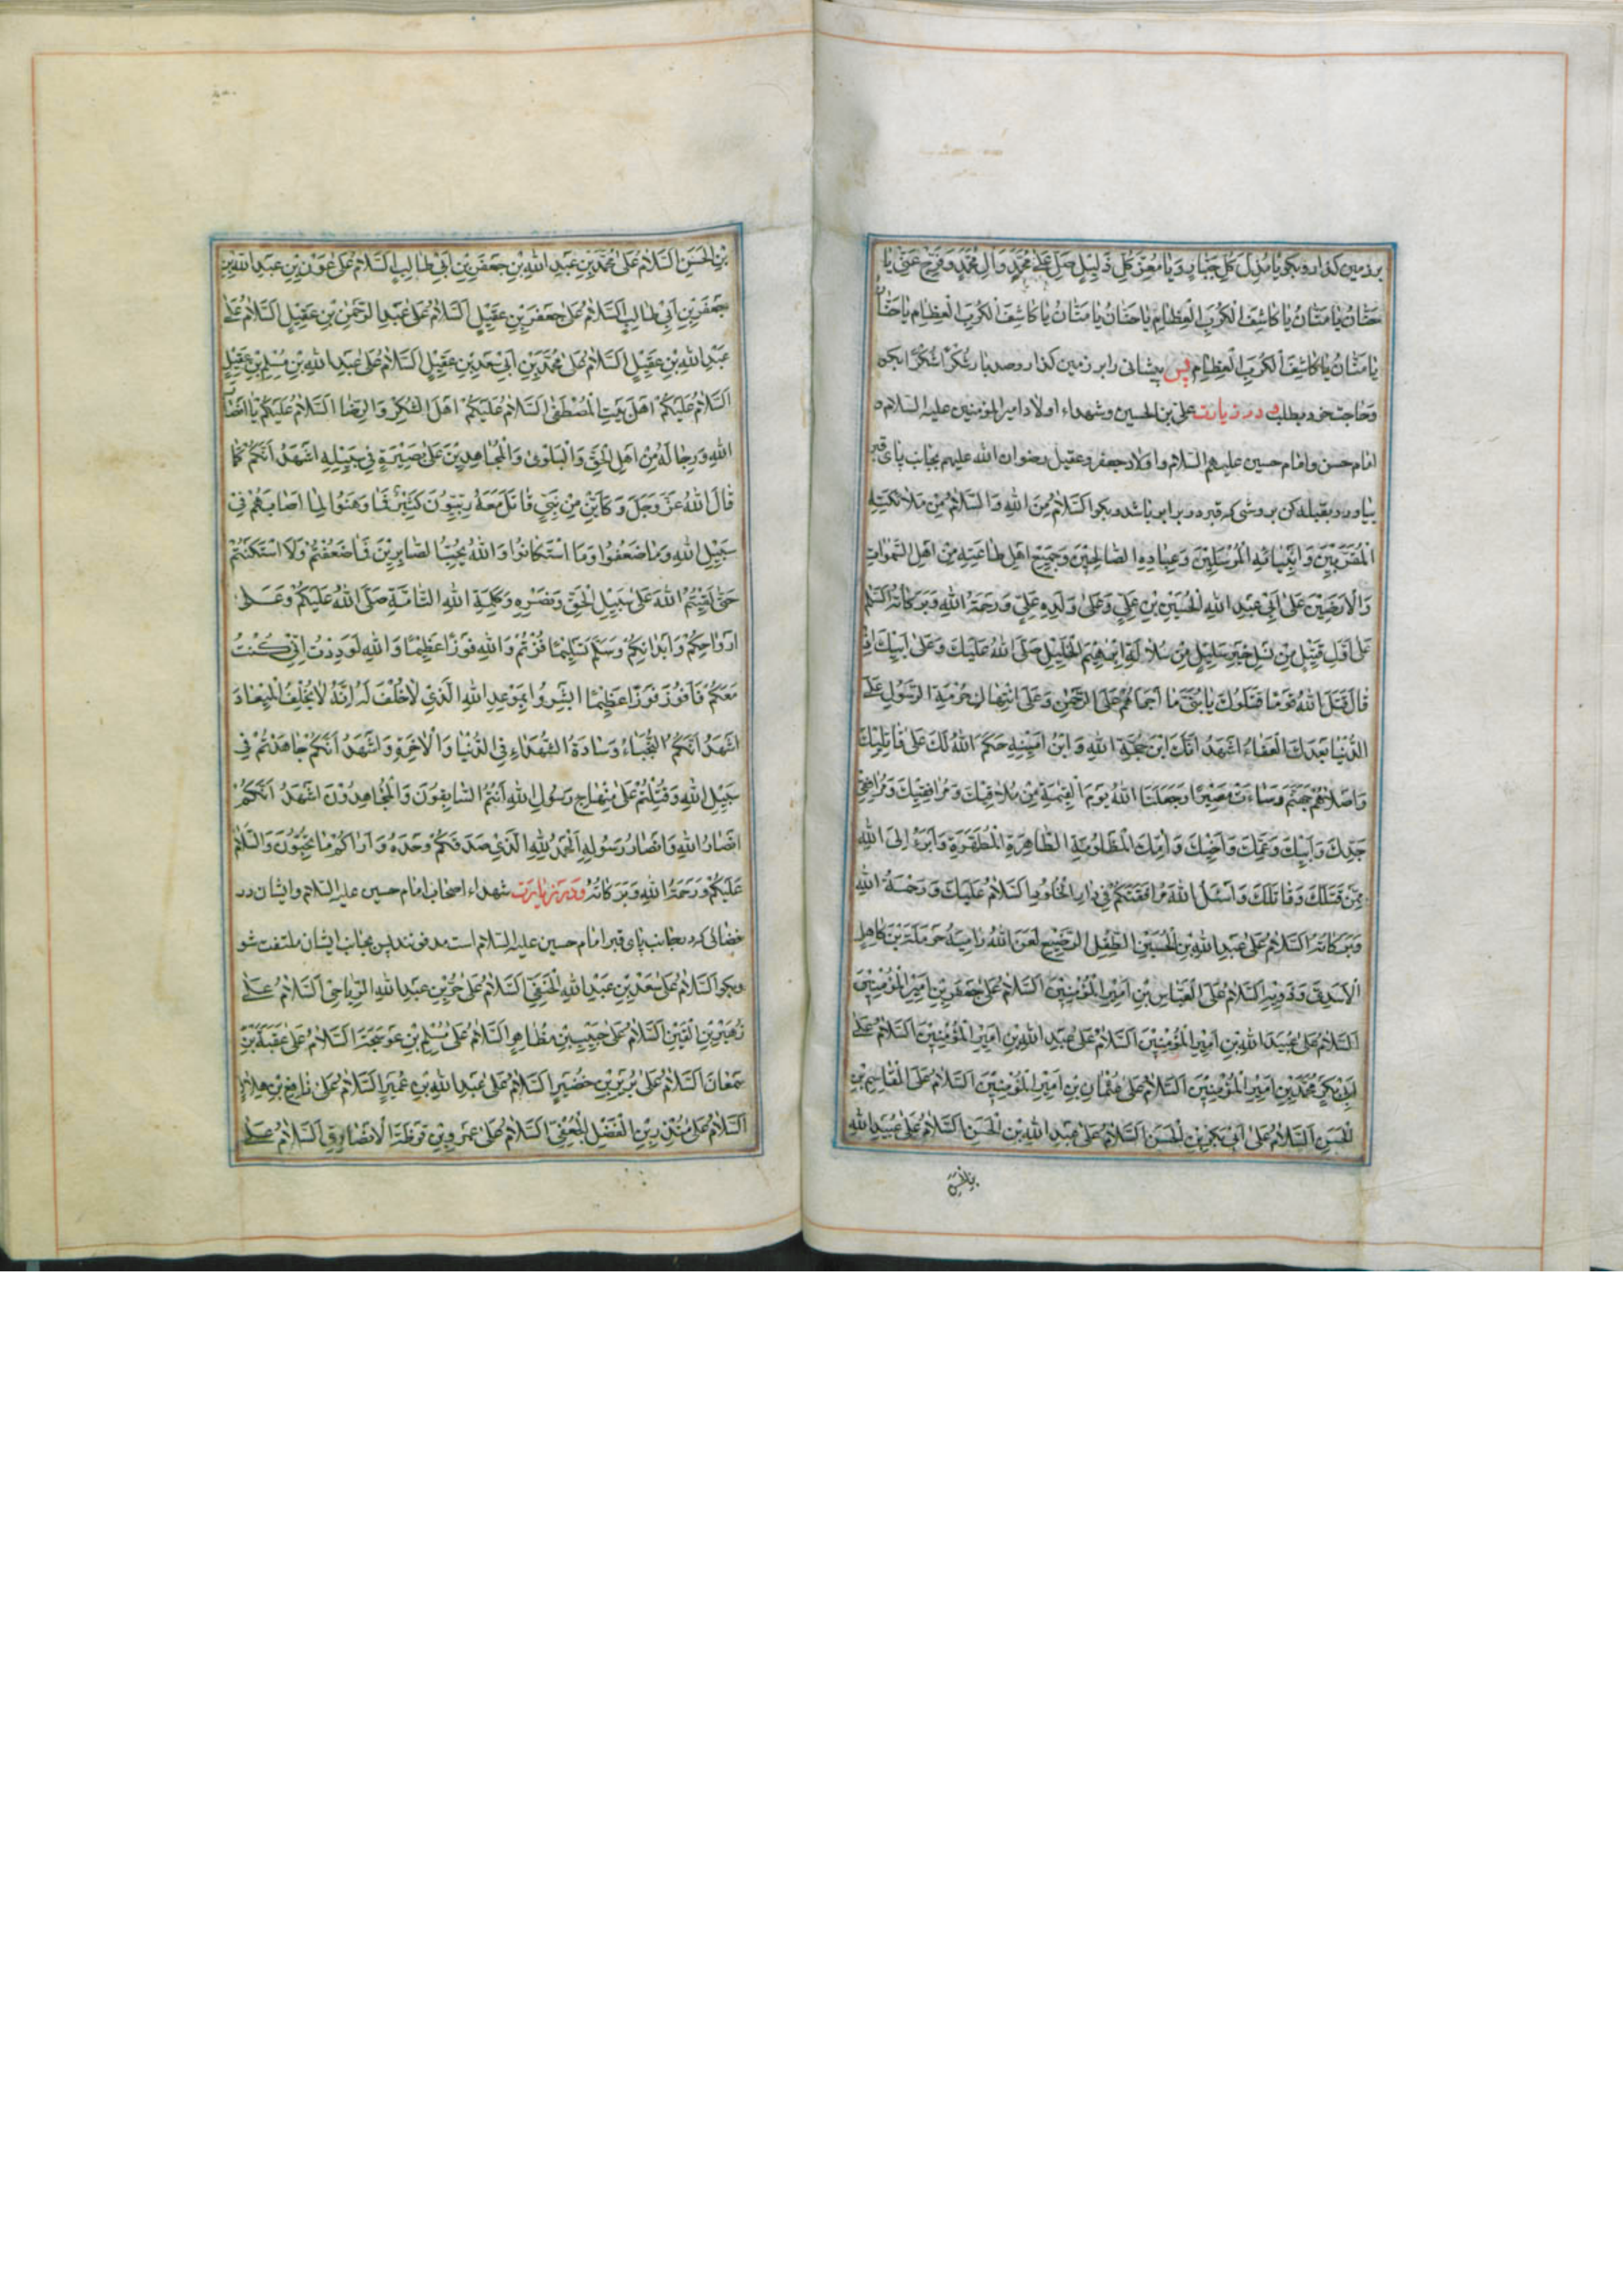 بر زمین گذار و بگو یا مُذِلَّ کُلِّ جَبّارٍ وَ یا مُعِزَّ کُلِّ ذَلیلٍ صَلِّ عَلی مُحَمَّدٍ وَ آلِ مُحَمَّدٍ وَ فَرِّج عَنّی یا
حَنّانُ یا مَنّانُ یا کاشِفَ الکُرَبِ العِظامِ یا حَنّانُ یا مَنّانُ یا کاشِفَ الکُرَبِ العِظامِ یا حَنّانُ
یا مَنّانُ یا کاشِفَ الکُرَبِ العِظامِ پس پیشانی را بر زمین گذار و صد بار شُکراً شُکراً بگو
و حاجت خود بطلب و در زیارت علی بن الحسین و شهداء اولاد امیر المؤمنین علیه السلام و
امام حسن و امام حسین علیهم السلام و اولاد جعفر و عقیل رضوان الله علیهم بجانب پای قبر
بیا و رو بقبله کن بروشی که قبر در برابر باشد و بگو اَلسَّلامُ مِنَ اللهِ وَ السَّلامُ مِن مَلائِکَتِهِ
المُقَرَّبینَ وَ اَنبِیائِهِ المُرسَلینَ وَ عِبادِهِ الصّالِحینَ وَ جَمیعِ اَهلِ طاعَتِهِ مِن اَهلِ السَّمواتِ
وَ الاَرَضینَ عَلی اَبی عَبدِ اللهِ الحُسَینِ بنِ عَلِیٍّ وَ عَلی وَلَدِهِ عَلِیٍّ وَ رَحمَةُ اللهِ وَ بَرَکاتُهُ اَلسَّلامُ
عَلی اَوَّلِ قَتیلٍ مِن نَسلِ خَیرِ سَلیلٍ مِن سُلالَةِ اِبراهیمَ الخَلیلِ صَلَّی اللهُ عَلَیکَ وَ عَلی اَبیکَ اِذ
قالَ قَتَلَ اللهُ قَوماً قَتَلوکَ یا بُنَیَّ ما اَجرَاَهُم عَلَی الرَّحمنِ وَ عَلَی انتِهاکِ حُرمَةِ الرَّسولِ عَلَی
الدُّنیا بَعدَکَ العَفاءُ اَشهَدُ اَنَّکَ ابنُ حُجَّةِ اللهِ وَ ابنُ اَمینِهِ حَکَمَ اللهُ لَکَ عَلی قاتِلیکَ
وَ اَصلاهُم جَهَنَّمَ وَ ساءَت مَصیراً وَ جَعَلَنَا اللهُ یَومَ القِیمَةِ مِن مُلاقیکَ وَ مُرافِقیکَ وَ مُرافِقی
جَدِّکَ وَ اَبیکَ وَ عَمِّکَ وَ اَخیکَ وَ اُمِّکَ المَظلومَةِ الطّاهِرَةِ المُطَهَّرَةِ وَ اَبرَءُ اِلَی اللهِ
مِمَّن قَتَلَکَ وَ قاتَلَکَ وَ اَسئَلُ اللهَ مُرافَقَتَکُم فی دارِ الخُلودِ اَلسَّلامُ عَلَیکَ وَ رَحمَةُ اللهِ
وَ بَرَکاتُهُ اَلسَّلامُ عَلی عَبدِ اللهِ بنِ الحُسَینِ الطِّفلِ الرَّضیعِ لَعَنَ اللهُ رامِیَهُ حَرمَلَةَ بنَ کاهِلٍ
الاَسَدِیَّ وَ ذَویهِ اَلسَّلامُ عَلَی العَبّاسِ بنِ اَمیرِ المُؤمِنینَ اَلسَّلامُ عَلی جَعفَرِ بنِ اَمیرِ المُؤمِنینَ
اَلسَّلامُ عَلی عُبَیدِ اللهِ بنِ اَمیرِ المُؤمِنینَ اَلسَّلامُ عَلی عَبدِ اللهِ بنِ اَمیرِ المُؤمِنینَ اَلسَّلامُ عَلی
اَبی بَکرٍ مُحَمَّدِ بنِ اَمیرِ المُؤمِنینَ اَلسَّلامُ عَلی عُثمانَ بنِ اَمیرِ المُؤمِنینَ اَلسَّلامُ عَلَی القاسِمِ بنِ
الحَسَنِ اَلسَّلامُ عَلی اَبی بَکرِ بنِ الحَسَنِ اَلسَّلامُ عَلی عَبدِ اللهِ بنِ الحَسَنِ اَلسَّلامُ عَلی عُبَیدِ اللهِ
بن الحسن
بنِ الحَسَنِ اَلسَّلامُ عَلی مُحَمَّدِ بنِ عَبدِ اللهِ بنِ جَعفَرِ بنِ اَبی طالِبٍ اَلسَّلامُ عَلی عَونِ بنِ عَبدِ اللهِ بنِ
جَعفَرِ بنِ اَبی طالِبٍ اَلسَّلامُ عَلی جَعفَرِ بنِ عَقیلٍ اَلسَّلامُ عَلی عَبدِ الرَّحمنِ بنِ عَقیلٍ اَلسَّلامُ عَلی
عَبدِ اللهِ بنِ عَقیلٍ اَلسَّلامُ عَلی مُحَمَّدِ بنِ اَبی سَعدِ بنِ عَقیلٍ اَلسَّلامُ عَلی عَبدِ اللهِ بنِ مُسلِمِ بنِ عَقیلٍ
اَلسَّلامُ عَلَیکُم اَهلَ بَیتِ المُصطَفی اَلسَّلامُ عَلَیکُم اَهلَ الشُّکرِ وَ الرِّضا اَلسَّلامُ عَلَیکُم یا اَنصارَ
اللهِ وَ رِجالَهُ مِن اَهلِ الحَقِّ وَ البَلوی وَ المُجاهِدینَ عَلی بَصیرَةٍ فی سَبیلِهِ اَشهَدُ اَنَّکُم کَما
قالَ اللهُ عَزَّ وَ جَلَّ وَ کَاَیِّن مِن نَبِیٍّ قاتَلَ مَعَهُ رِبِّیّونَ کَثیرٌ فَما وَهَنوا لِما اَصابَهُم فی
سَبیلِ اللهِ وَ ما ضَعُفوا وَ مَا استَکانوا وَ اللهُ یُحِبُّ الصّابِرینَ فَما ضَعُفتُم وَ لا استَکَنتُم
حَتّی لَقیتُمُ اللهَ عَلی سَبیلِ الحَقِّ وَ نَصرِهِ وَ کَلِمَةِ اللهِ التّامَّةِ صَلَّی اللهُ عَلَیکُم وَ عَلی
اَرواحِکُم وَ اَبدانِکُم وَ سَلَّمَ تَسلیماً فُزتُم وَ اللهِ فَوزاً عَظیماً وَ اللهِ لَوَدِدتُ اَنّی کُنتُ
مَعَکُم فَاَفوزَ فَوزاً عَظیماً اَبشِروا بِمَوعِدِ اللهِ الَّذی لا خُلفَ لَهُ اِنَّهُ لا یُخلِفُ المیعادَ
اَشهَدُ اَنَّکُمُ النُّجَباءُ وَ سادَةُ الشُّهَداءِ فِی الدُّنیا وَ الاخِرَةِ وَ اَشهَدُ اَنَّکُم جاهَدتُم فی
سَبیلِ اللهِ وَ قُتِلتُم عَلی مِنهاجِ رَسولِ اللهِ اَنتُمُ السّابِقونَ وَ المُجاهِدونَ اَشهَدُ اَنَّکُم
اَنصارُ اللهِ وَ اَنصارُ رَسولِهِ اَلحَمدُ لِلّهِ الَّذی صَدَقَکُم وَعدَهُ وَ اَراکُم ما تُحِبّونَ وَ السَّلامُ
عَلَیکُم وَ رَحمَةُ اللهِ وَ بَرَکاتُهُ و در زیارت شهداء اصحاب امام حسین علیه السلام و ایشان در
فضائی که در بجانب پای قبر امام حسین علیه السلام است مدفونند پس بجانب ایشان ملتفت شو
و بگو اَلسَّلامُ عَلی سَعدِ بنِ عَبدِ اللهِ الحَنَفِیِّ اَلسَّلامُ عَلی حُرِّ بنِ عَبدِ اللهِ الرِّیاحِیِّ اَلسَّلامُ عَلی
زُهَیرِ بنِ القَینِ اَلسَّلامُ عَلی حَبیبِ بنِ مُظاهِرٍ اَلسَّلامُ عَلی مُسلِمِ بنِ عَوسَجَةَ اَلسَّلامُ عَلی عُقبَةَ بنِ
سَمعانَ اَلسَّلامُ عَلی بُرَیرِ بنِ خُضَیرٍ اَلسَّلامُ عَلی عَبدِ اللهِ بنِ عُمَیرٍ اَلسَّلامُ عَلی نافِعِ بنِ هِلالٍ
اَلسَّلامُ عَلی مُنذِرِ بنِ المُفَضَّلِ الجُعفِیِّ اَلسَّلامُ عَلی عَمرِو بنِ قَرَظَةَ الاَنصارِیِّ اَلسَّلامُ عَلی